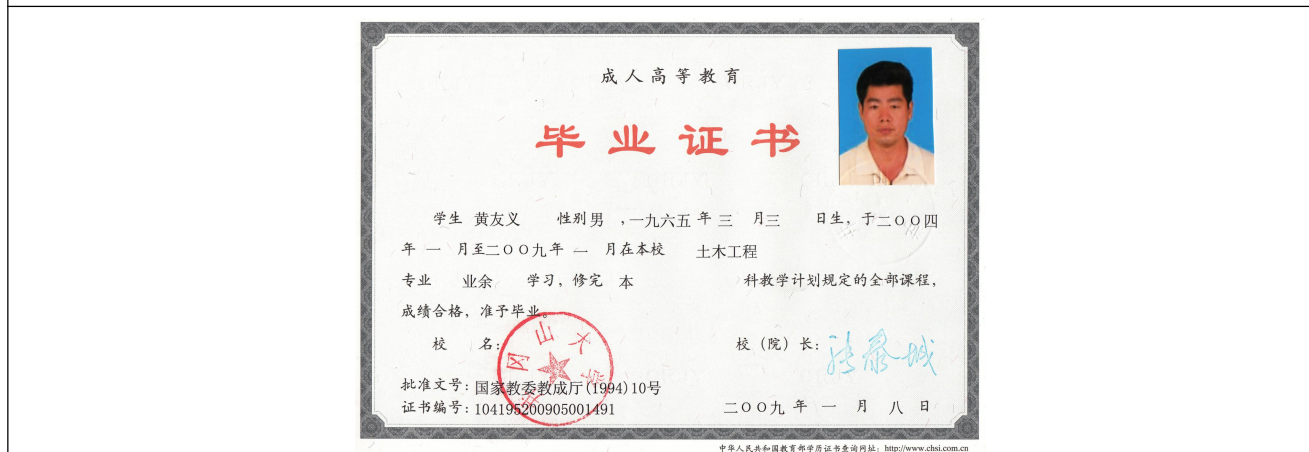 成人高等教育
毕业证书
学生 黄友义 性别 男 ,一九六五 年 三 月 三 日生，于二〇〇四
年 一 月至二〇〇九年 一 月在本校 土木工程
专业 业余 学习，修完 本 科教学计划规定的全部课程，
成绩合格，准予毕业。
校 名： 校（院）长：张泰城
井冈山大学
批准文号：国家教委教成厅(1994)10号
证书编号：104195200905001491 二〇〇九 年 一 月 八 日
中华人民共和国教育部学历证书查询网址：http://www.chsi.com.cn